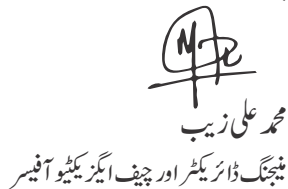 محمد علی زیب
منیجنگ ڈائریکٹر اور چیف ایگزیکٹیو آفیسر